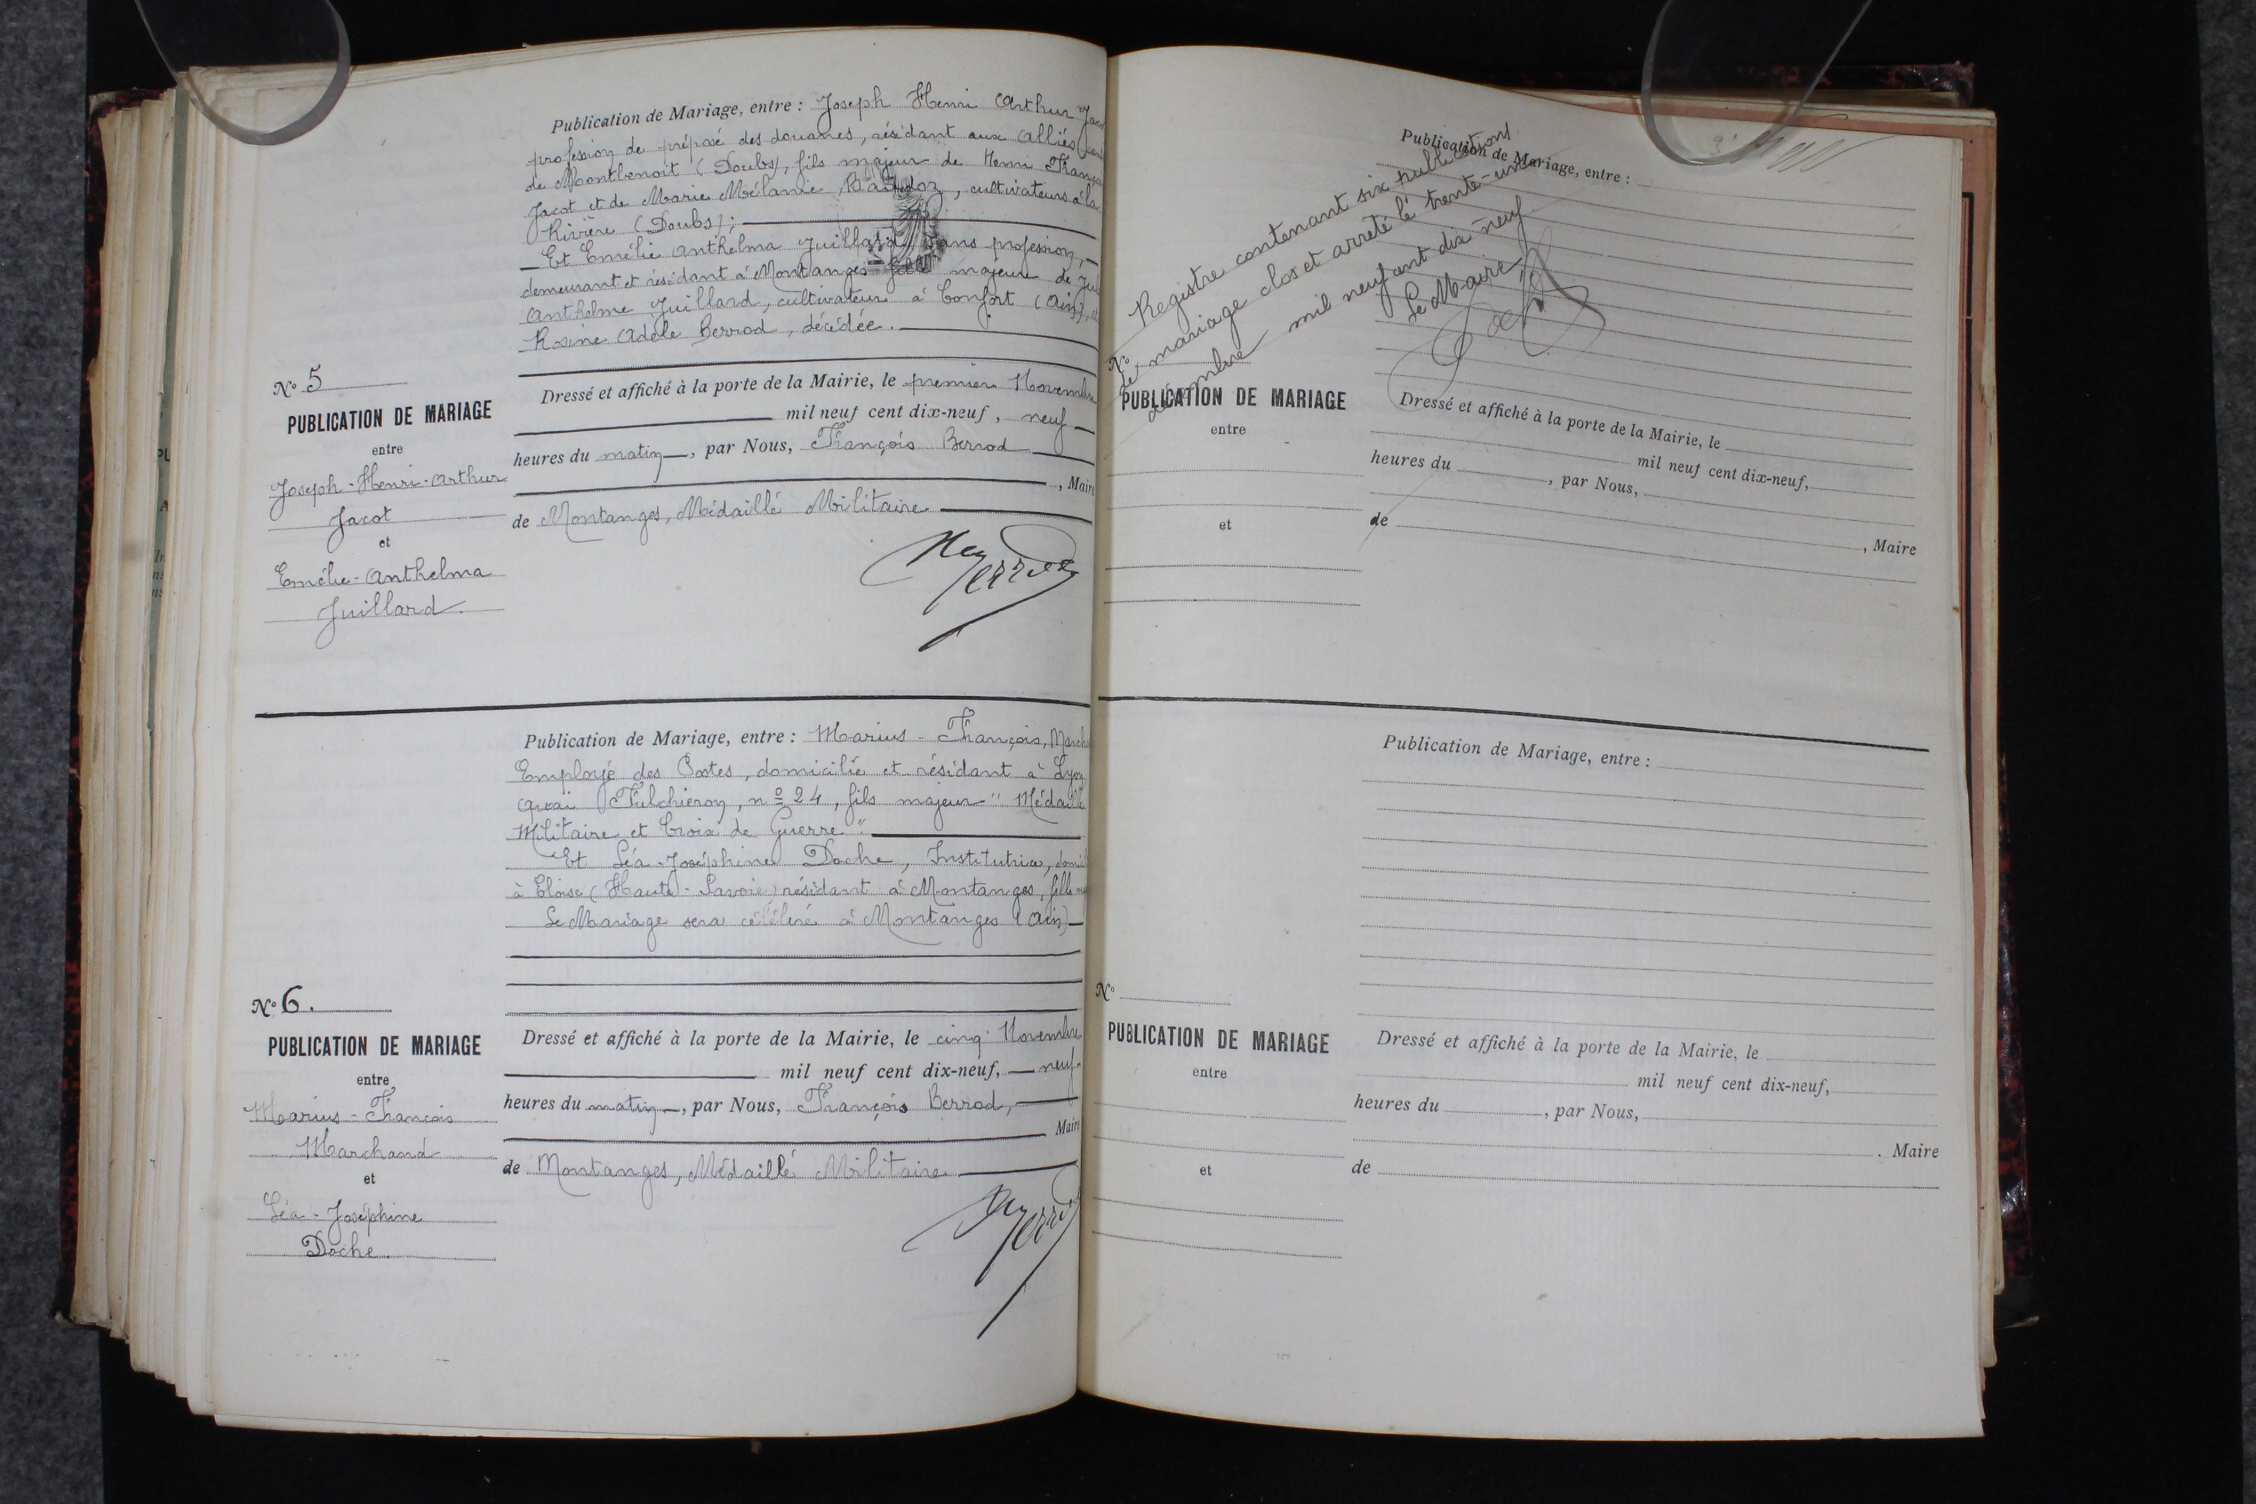 Publication de Mariage, entre : Joseph Henri Arthur
profession de préposé des douanes, résidant aux Alliés
de Montbenoit (Doubs), fils majeur de Henri
Jacot et de Marie Mélanie, cultivateurs à la
Rivière (Doubs);
Et Emélie Anthelma Juillard sans profession,
demeurant et résidant à Montanges fille majeure de
Anthelme Juillard, cultivateur à Confort (Ain),
Rosine Adèle Berrod, décédée.
N° 5
PUBLICATION DE MARIAGE
entre
Joseph-Henri-Arthur
Jacot
et
Emélie-Anthelma
Juillard.
Dressé et affiché à la porte de la Mairie, le premier Novembre
mil neuf cent dix-neuf, neuf
heures du matin, par Nous, François Berrod
, Maire
de Montanges, Médaillé Militaire
Berrod
Publication de Mariage, entre : Marius-François,
Employé des Postes, domicilié et résidant à Lyon
quai Fulchiron, n° 24, fils majeur "Médaille
Militaire et Croix de Guerre".
Et Léa-Joséphine Doche, Institutrice,
à Eloise (Haute-Savoie) résidant à Montanges, fille
Le Mariage sera célébré à Montanges (Ain)
N° 6.
PUBLICATION DE MARIAGE
entre
Marius-François
Marchand
et
Léa-Joséphine
Doche.
Dressé et affiché à la porte de la Mairie, le cinq Novembre
mil neuf cent dix-neuf, neuf
heures du matin, par Nous, François Berrod,
Maire
de Montanges, Médaillé Militaire
Berrod
Publication de Mariage, entre :
Registre contenant six publications
de mariage clos et arrêté le trente-un
décembre mil neuf cent dix neuf
Le Maire
N°
PUBLICATION DE MARIAGE
entre
et
Dressé et affiché à la porte de la Mairie, le
mil neuf cent dix-neuf,
heures du , par Nous,
de
, Maire
Publication de Mariage, entre :
N°
PUBLICATION DE MARIAGE
entre
et
Dressé et affiché à la porte de la Mairie, le
mil neuf cent dix-neuf,
heures du , par Nous,
. Maire
de